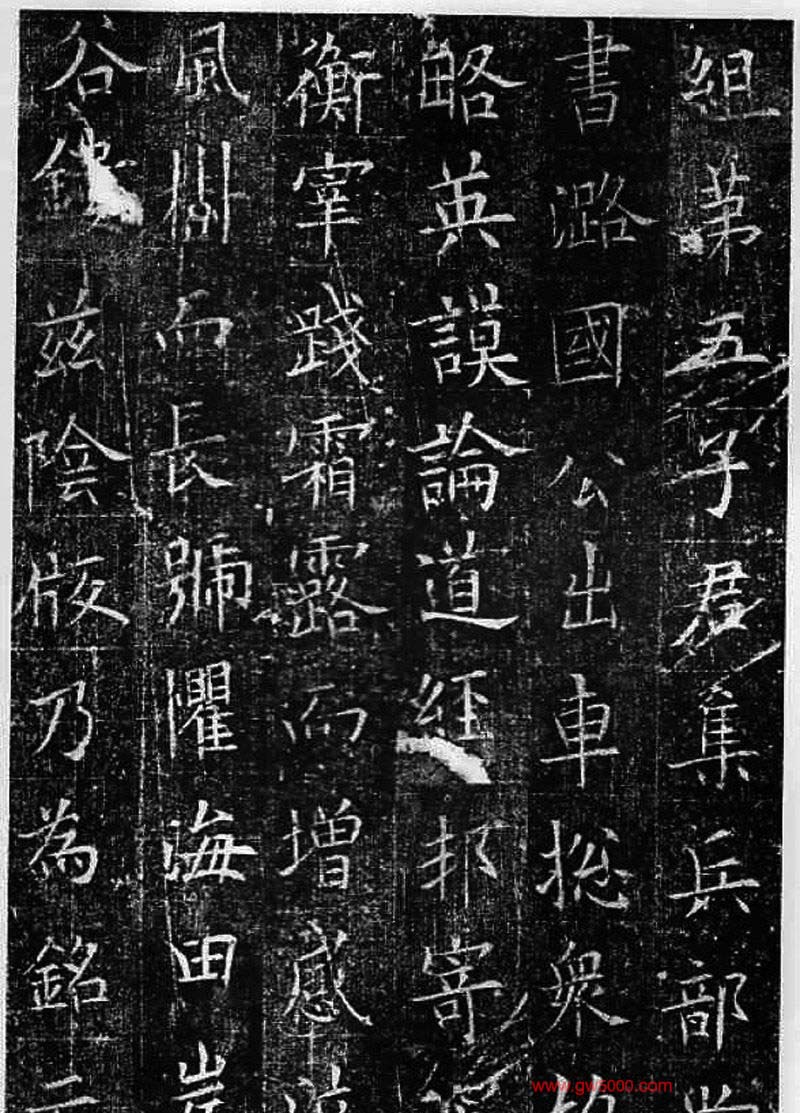 組苐五子君集兵部
書潞國公出車揔衆
略英謨論道經邦寄
衡宰踐霜露而增感
風樹而長號懼海田岸
谷兹陰版乃為銘
www.gw5000.com